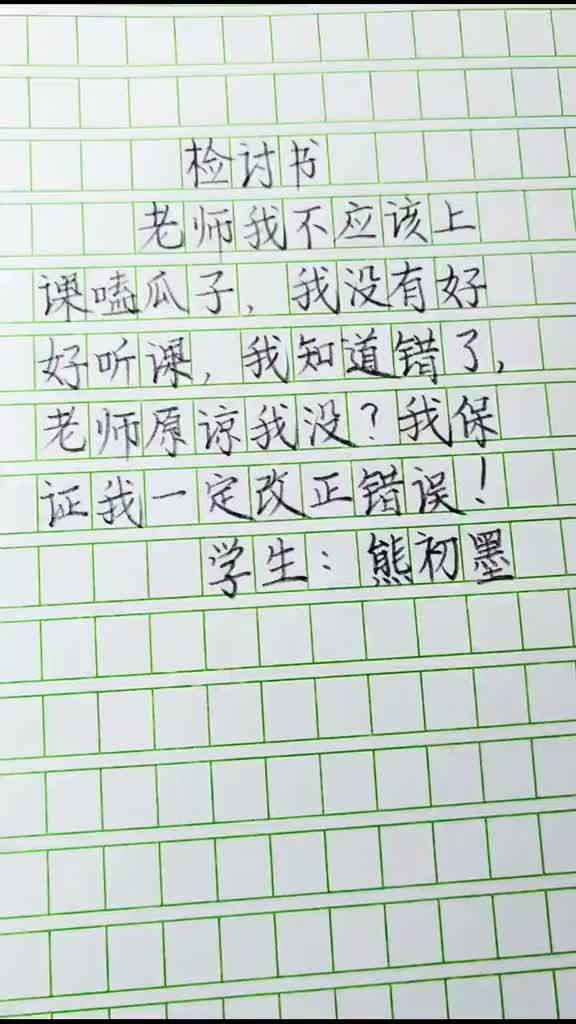 检讨书
老师我不应该上
课嗑瓜子，我没有好
好听课，我知道错了，
老师原谅我没？我保
证我一定改正错误！
学生：熊初墨